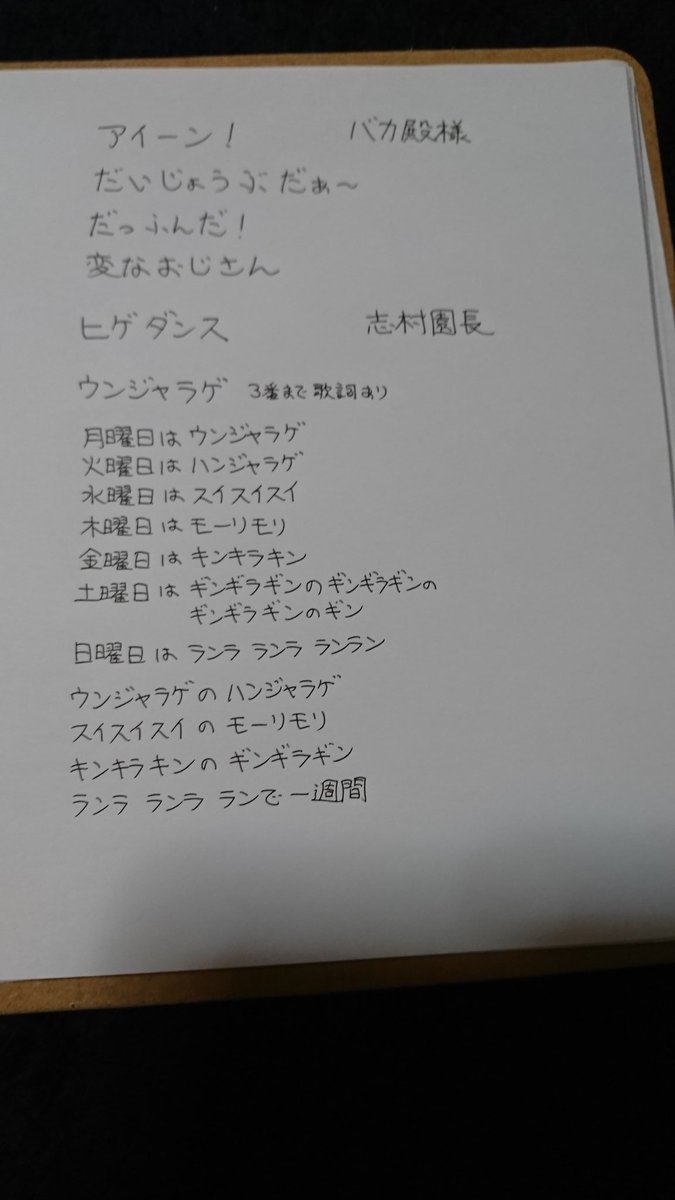 アイーン！ バカ殿様
だいじょうぶだぁ～
だっふんだ！
変なおじさん
ヒゲダンス 志村園長
ウンジャラゲ 3番まで歌詞あり
月曜日は ウンジャラゲ
火曜日は ハンジャラゲ
水曜日は スイスイスイ
木曜日は モーリモリ
金曜日は キンキラキン
土曜日は ギンギラギンの ギンギラギンの
ギンギラギンのギン
日曜日は ランラ ランラ ランラン
ウンジャラゲの ハンジャラゲ
スイスイスイの モーリモリ
キンキラキンの ギンギラギン
ランラ ランラ ランで 一週間